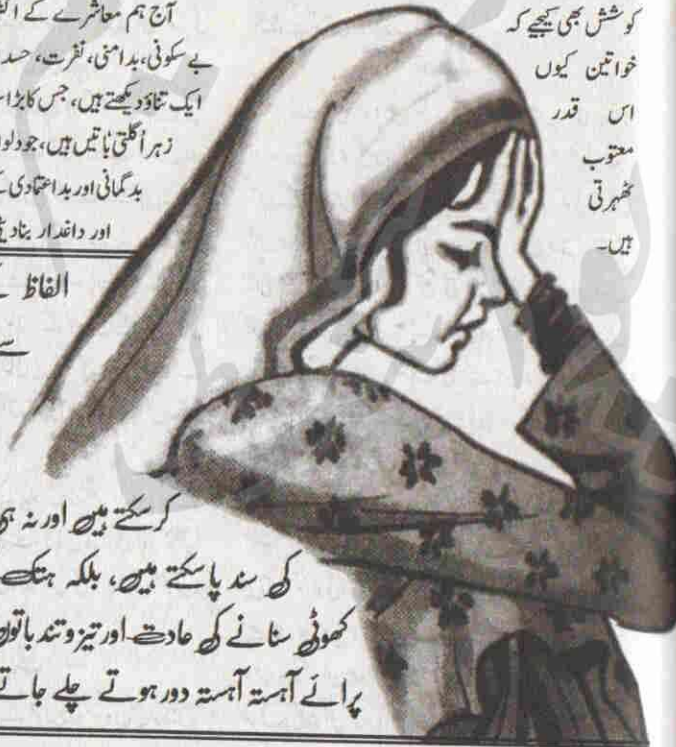 کوشش بھی کیجیے کہ
خواتین کیوں
اس قدر
معتوب
ٹھہرتی
ہیں۔
آج ہم معاشرے کے
بے سکونی، بدامنی، نفرت، حسد
ایک تناؤ دیکھتے ہیں، جس کا بڑا
زہر اُگلتی باتیں ہیں، جو
بدگمانی اور بداعتمادی
اور داغدار بنا
الفاظ
سے
کرسکتے ہیں اور نہ ہی
کی سند پاسکتے ہیں، بلکہ ہتک
کھوٹی سنانے کی عادت اور تیز و تند باتوں
پرائے آہستہ آہستہ دور ہوتے چلے جاتے